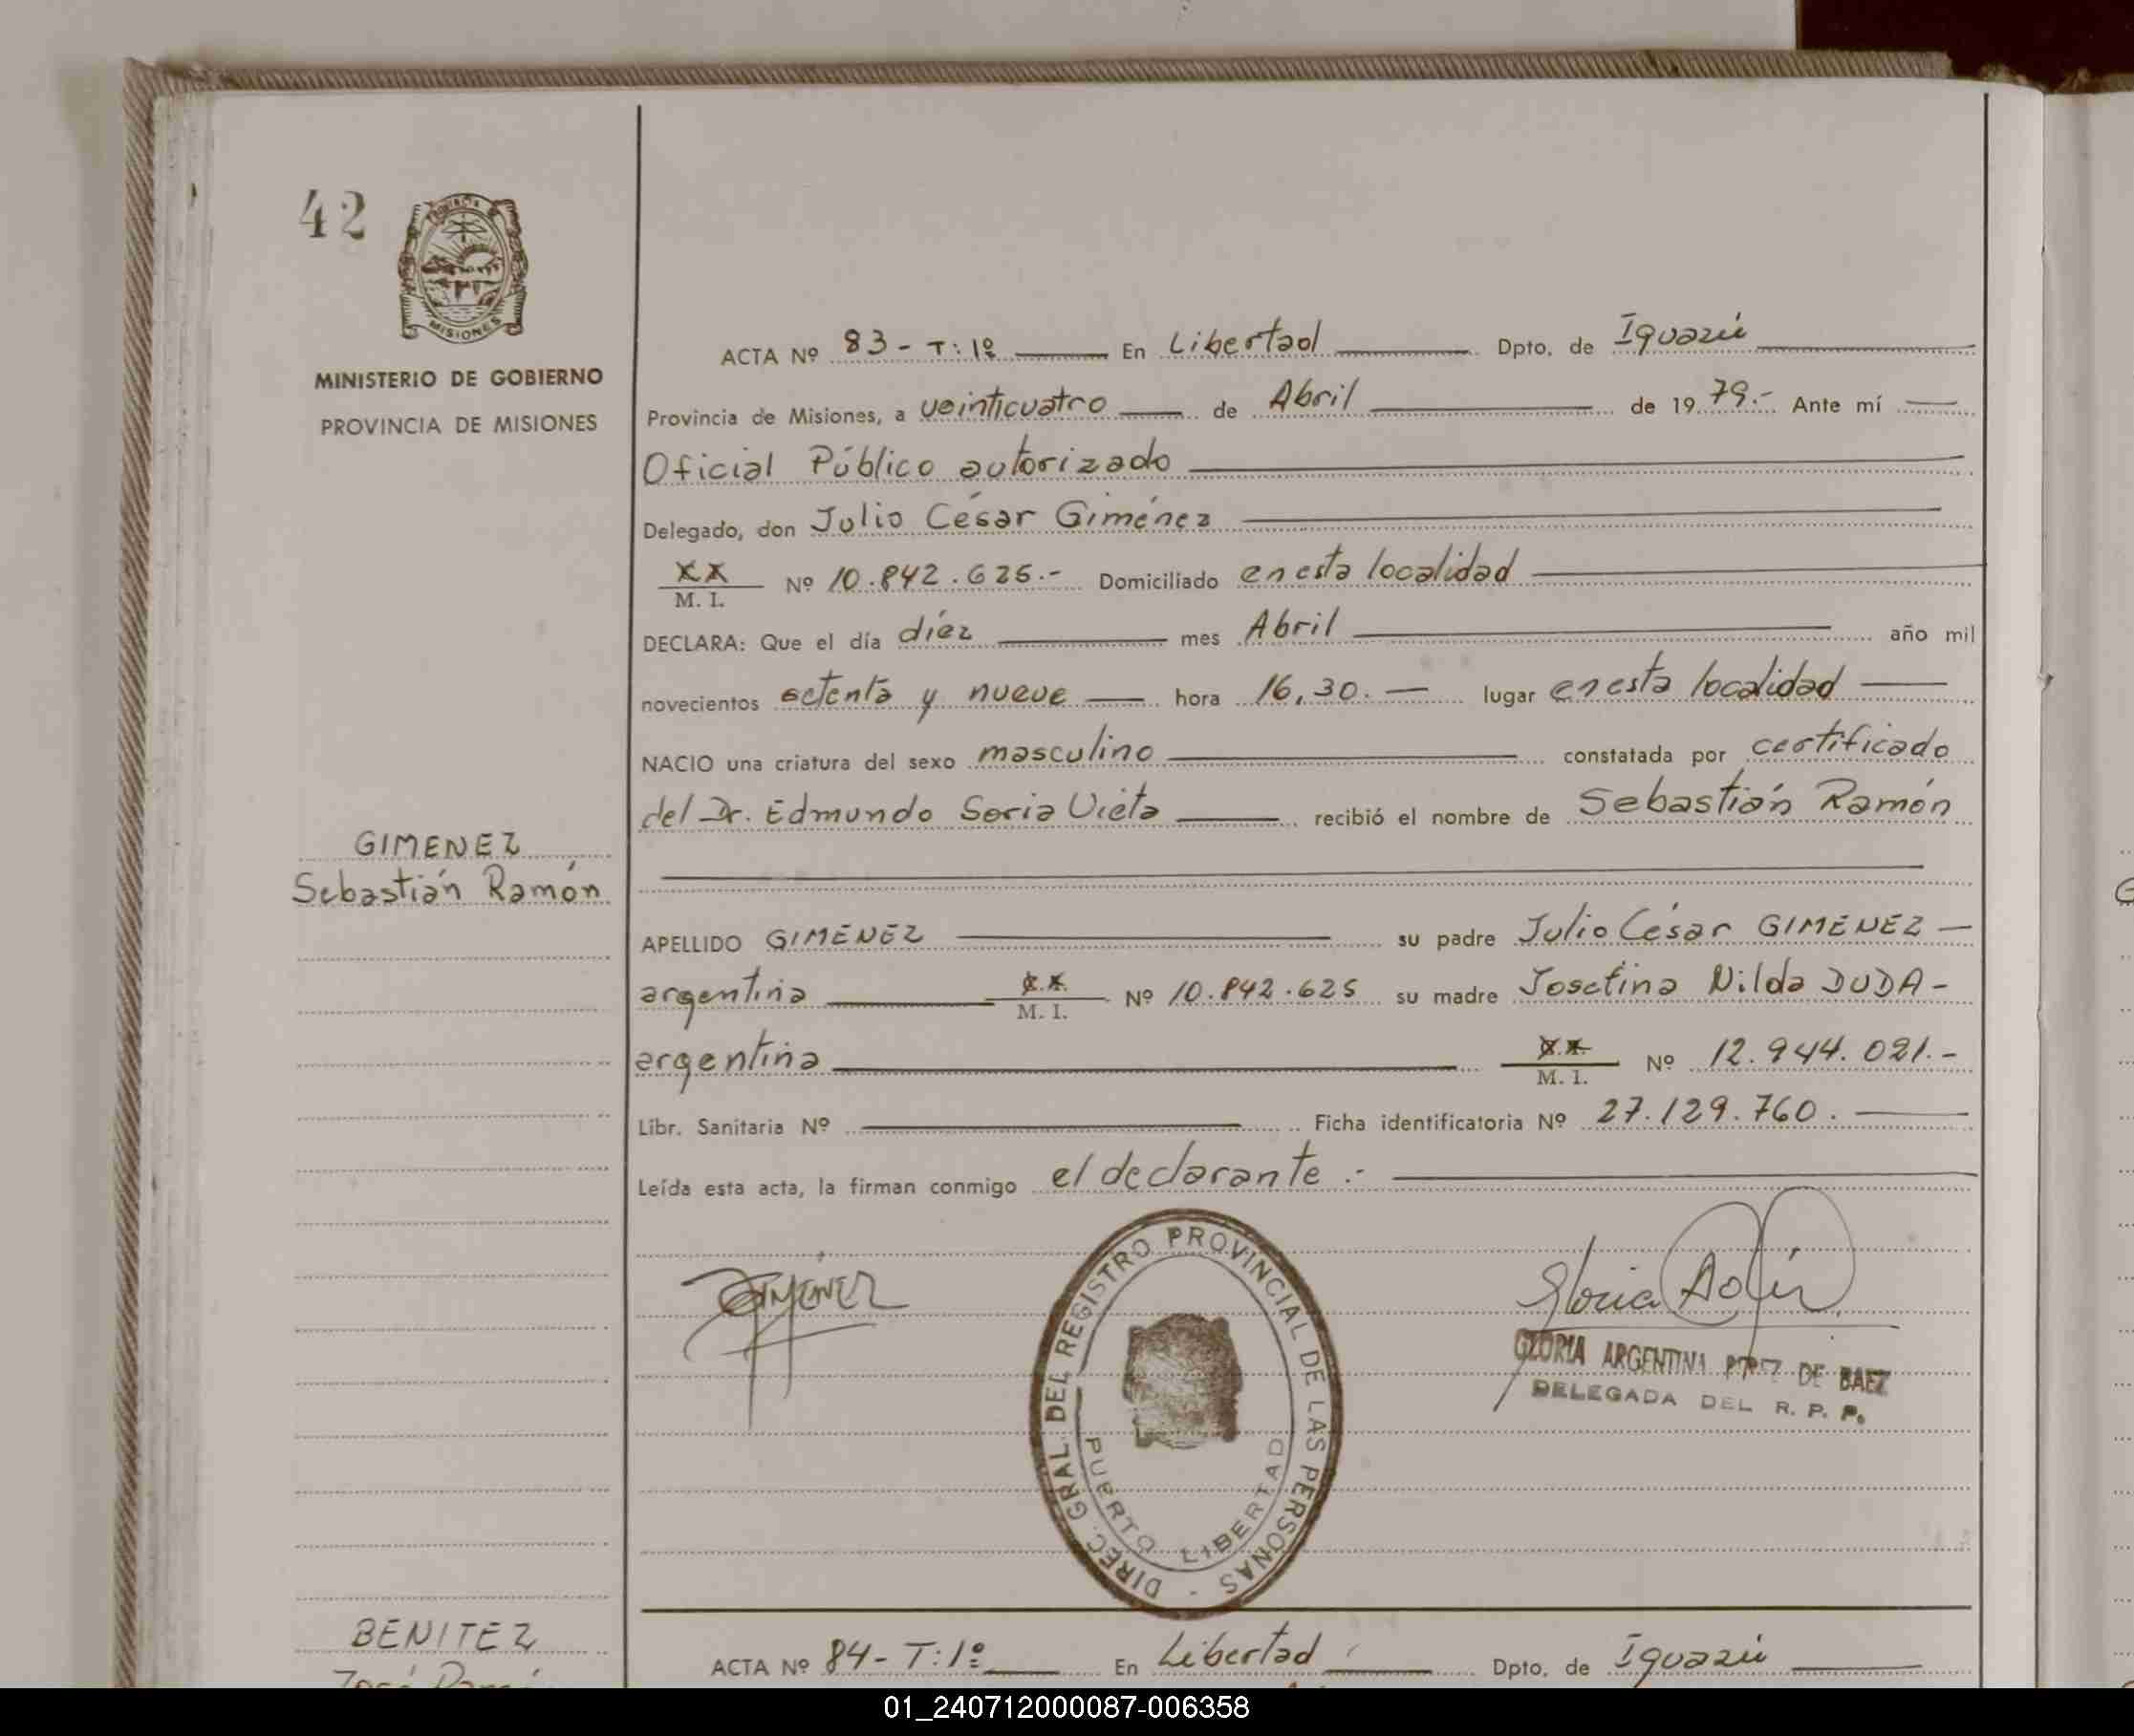 42
PROVINCIA
MISIONES
MINISTERIO DE GOBIERNO
PROVINCIA DE MISIONES
ACTA Nº 83 - T: 1º En Libertad Dpto. de Iguazú
Provincia de Misiones, a veinticuatro de Abril de 1979.- Ante mí
Oficial Público autorizado
Delegado, don Julio César Giménez
XX M. I. Nº 10.842.625.- Domiciliado en esta localidad
DECLARA: Que el día diéz mes Abril año mil
novecientos setenta y nueve hora 16,30.- lugar en esta localidad
NACIO una criatura del sexo masculino constatada por certificado
del Dr. Edmundo Soria Vieta recibió el nombre de Sebastián Ramón
GIMENEZ
Sebastián Ramón
APELLIDO GIMÉNEZ su padre Julio César GIMÉNEZ -
argentina M. I. Nº 10.842.625 su madre Josefina Nilda DUDA -
argentina M. I. Nº 12.944.021.-
Libr. Sanitaria Nº Ficha identificatoria Nº 27.129.760.
Leída esta acta, la firman conmigo el declarante.-
GIMENEZ
DIREC. GRAL. DEL REGISTRO PROVINCIAL DE LAS PERSONAS -
PUERTO LIBERTAD
Gloria
GLORIA ARGENTINA PEREZ DE BAEZ
DELEGADA DEL R. P. P.
BENITEZ
José Ramón
ACTA Nº 84 - T: 1º En Libertad Dpto. de Iguazú
01_240712000087-006358